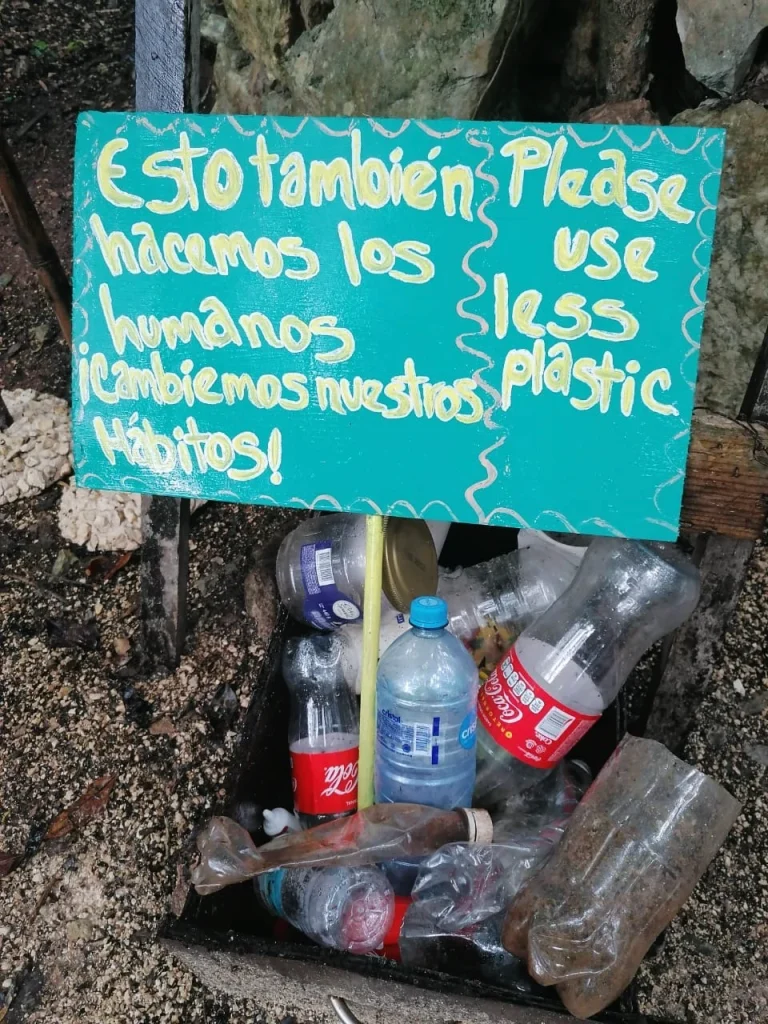 Esto también
hacemos los
humanos
¡Cambiemos nuestros
Hábitos!
Please
use
less
plastic
Coca-Cola
Cola